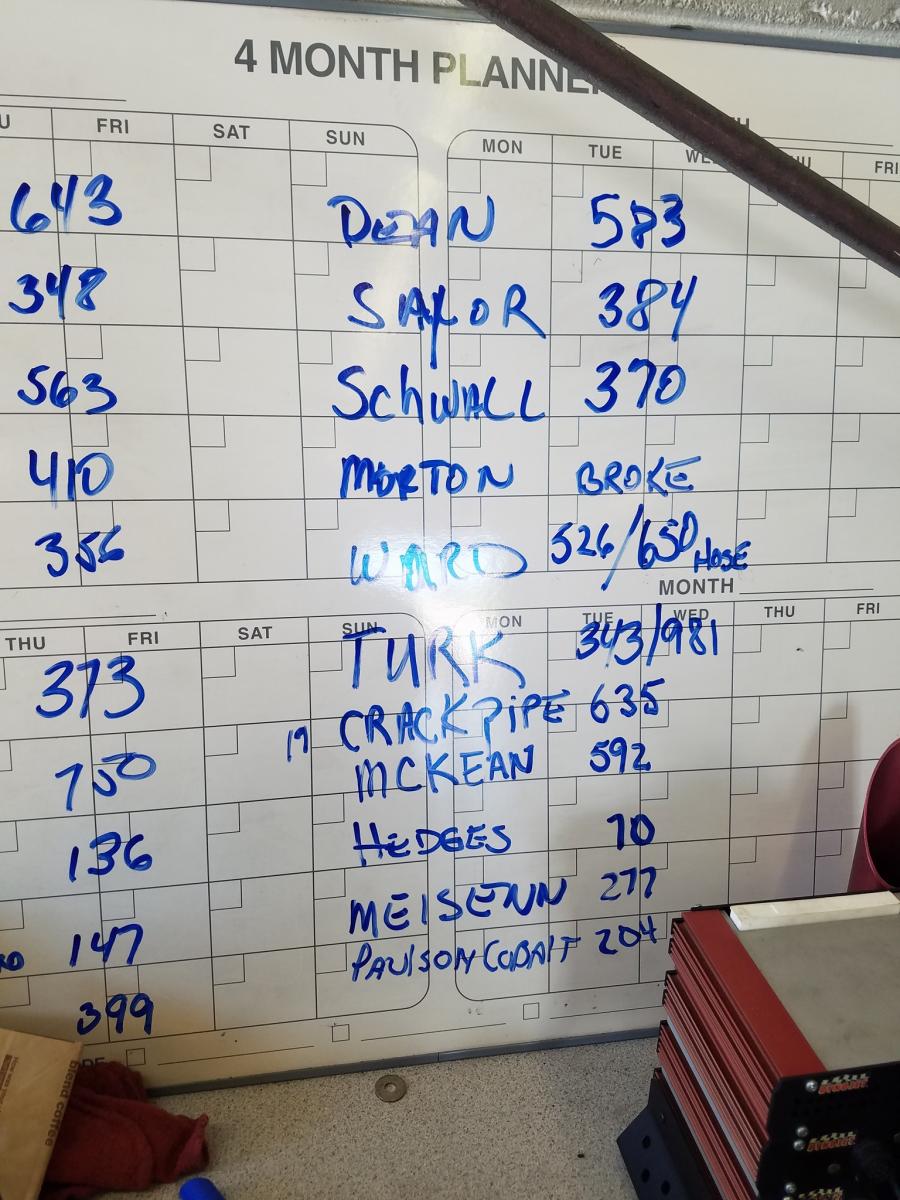 4 MONTH PLANNE
FRI SAT SUN MON TUE WE HU FRI
643 DEAN 583
348 SAYLOR 384
563 SCHWALL 370
410 MORTON BROKE
356 WARD 526/650 HOSE
MONTH
THU FRI SAT SUN MON TUE WED THU FRI
373 TURK 343/981
CRACKPIPE 635
750 19 MCKEAN 592
136 HEDGES 70
147 MEISENN 277
PAULSON COBALT 204
399
blend coffee
DYNOJET
DYNOJET